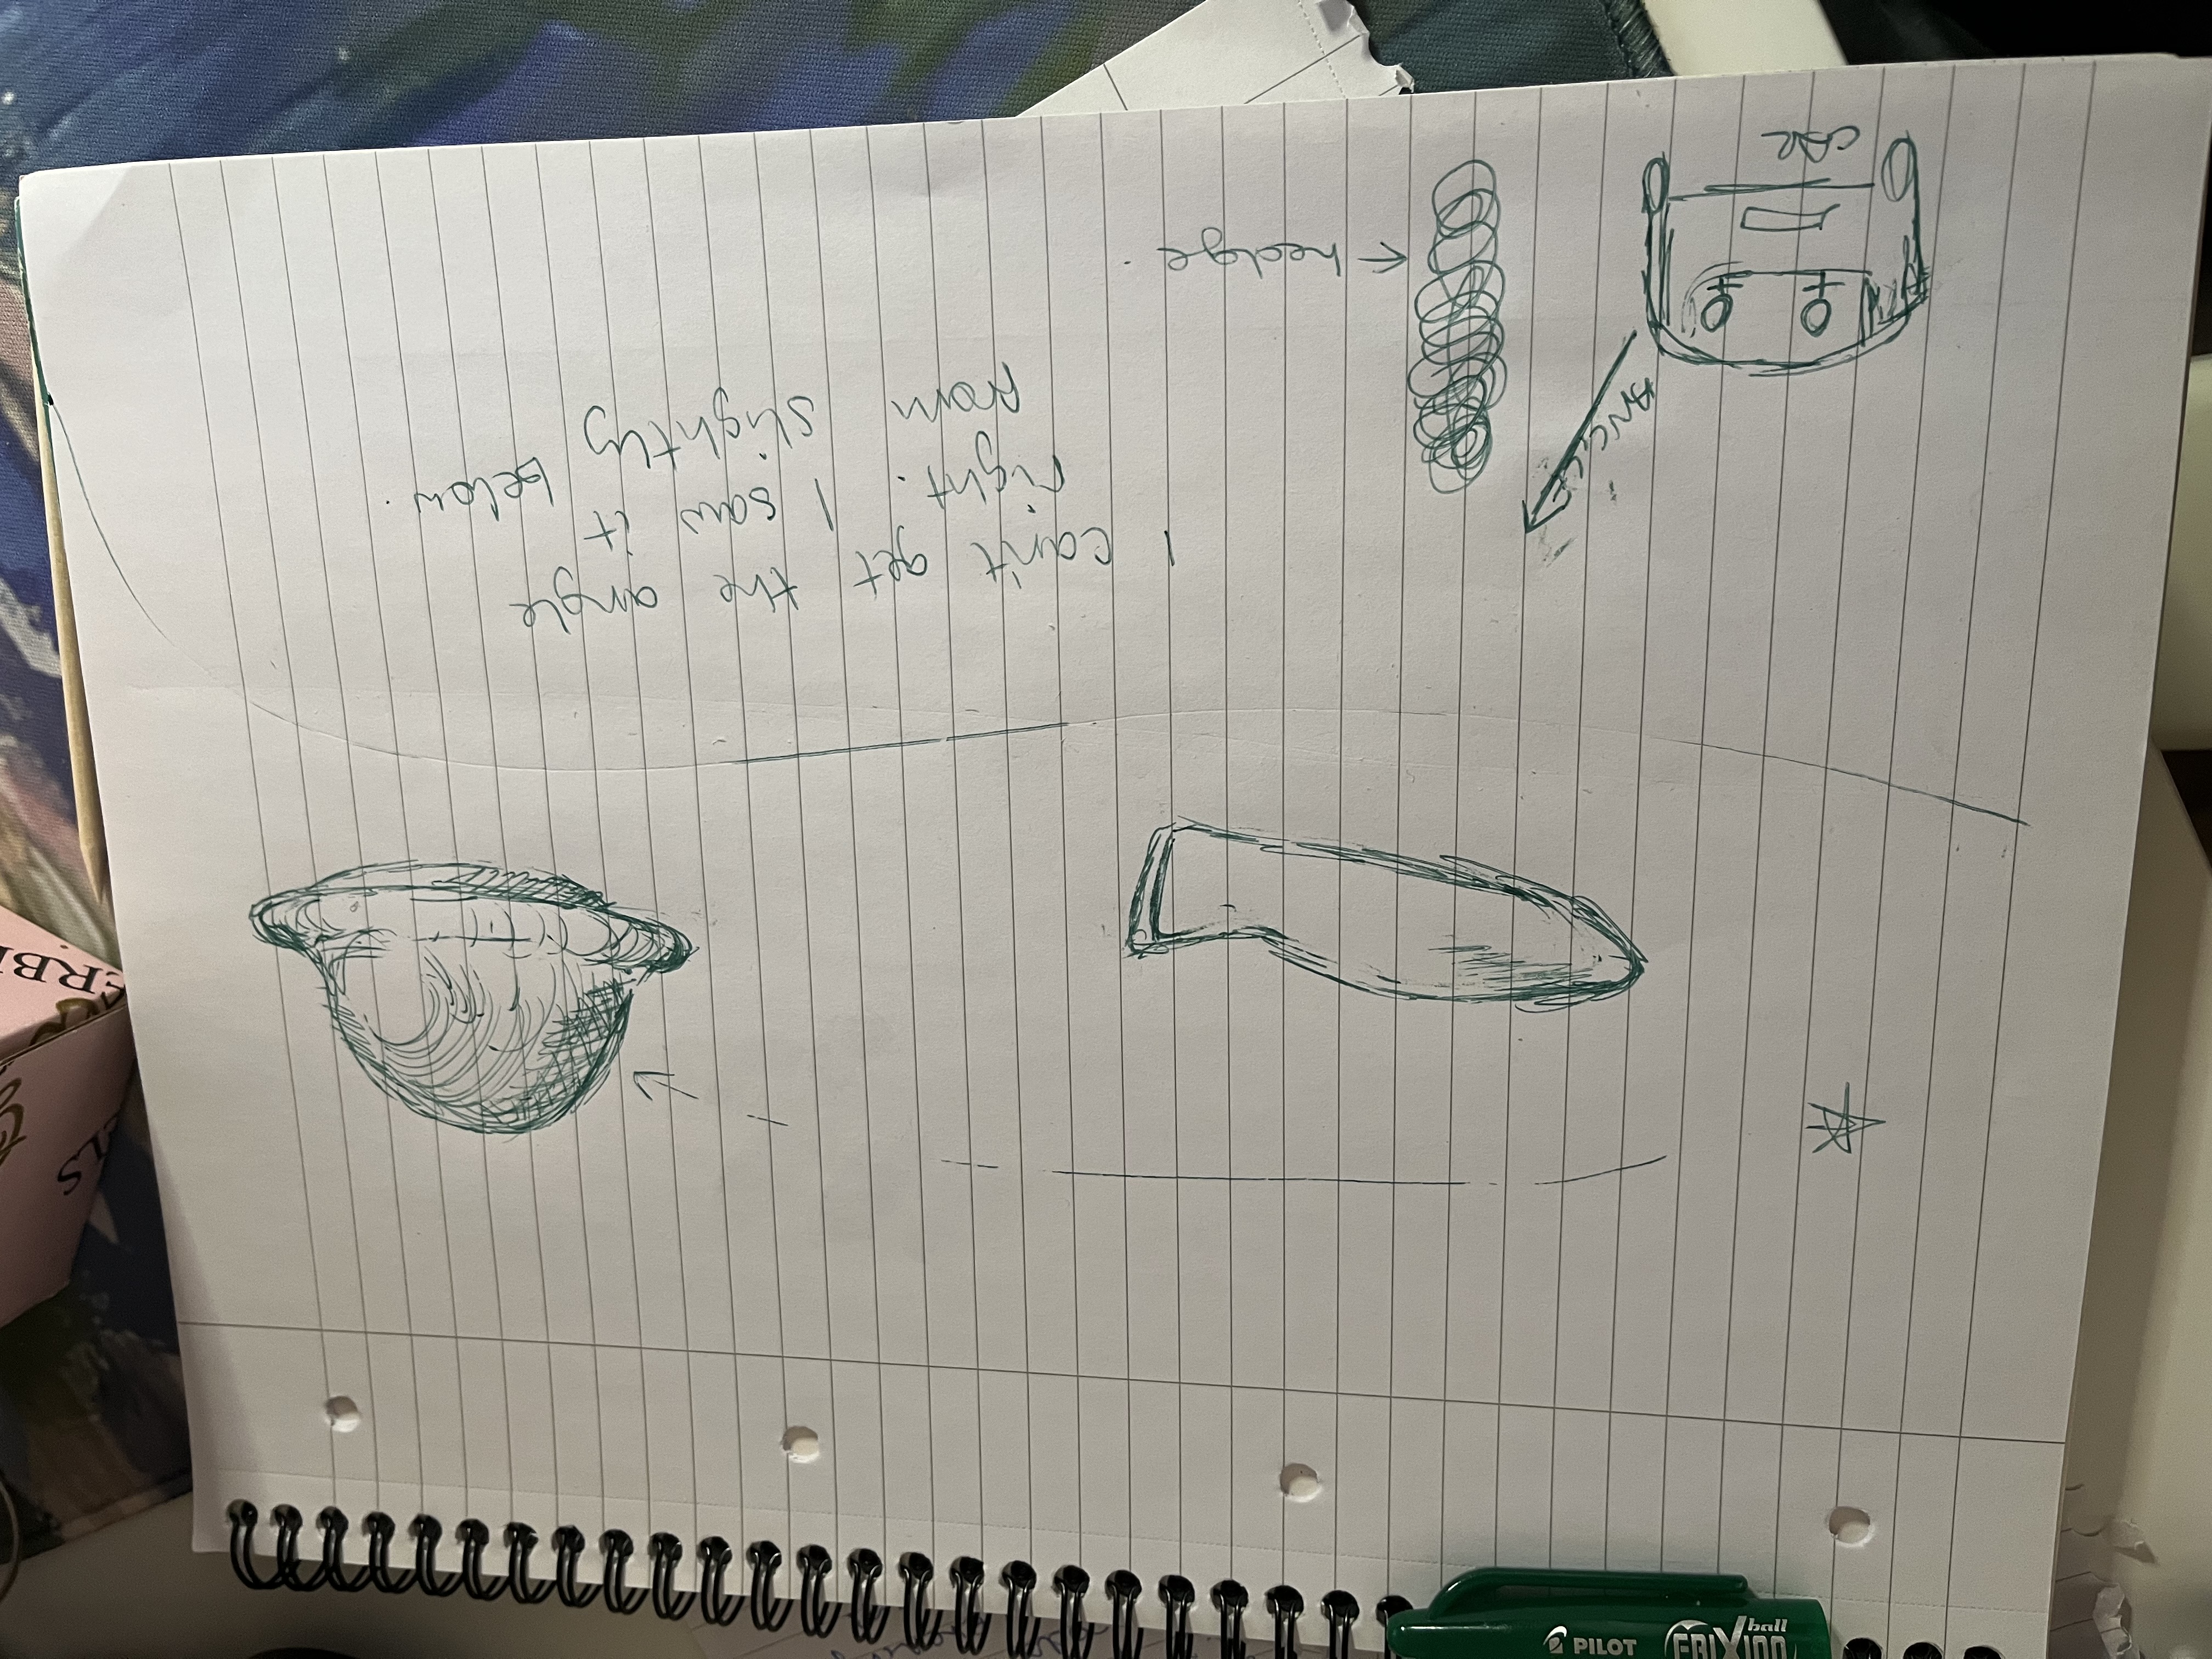 I can't get the angle
right. I saw it
from slightly below.
← hedge.
ANGLE
CAR
PILOT
FRIXION
ball